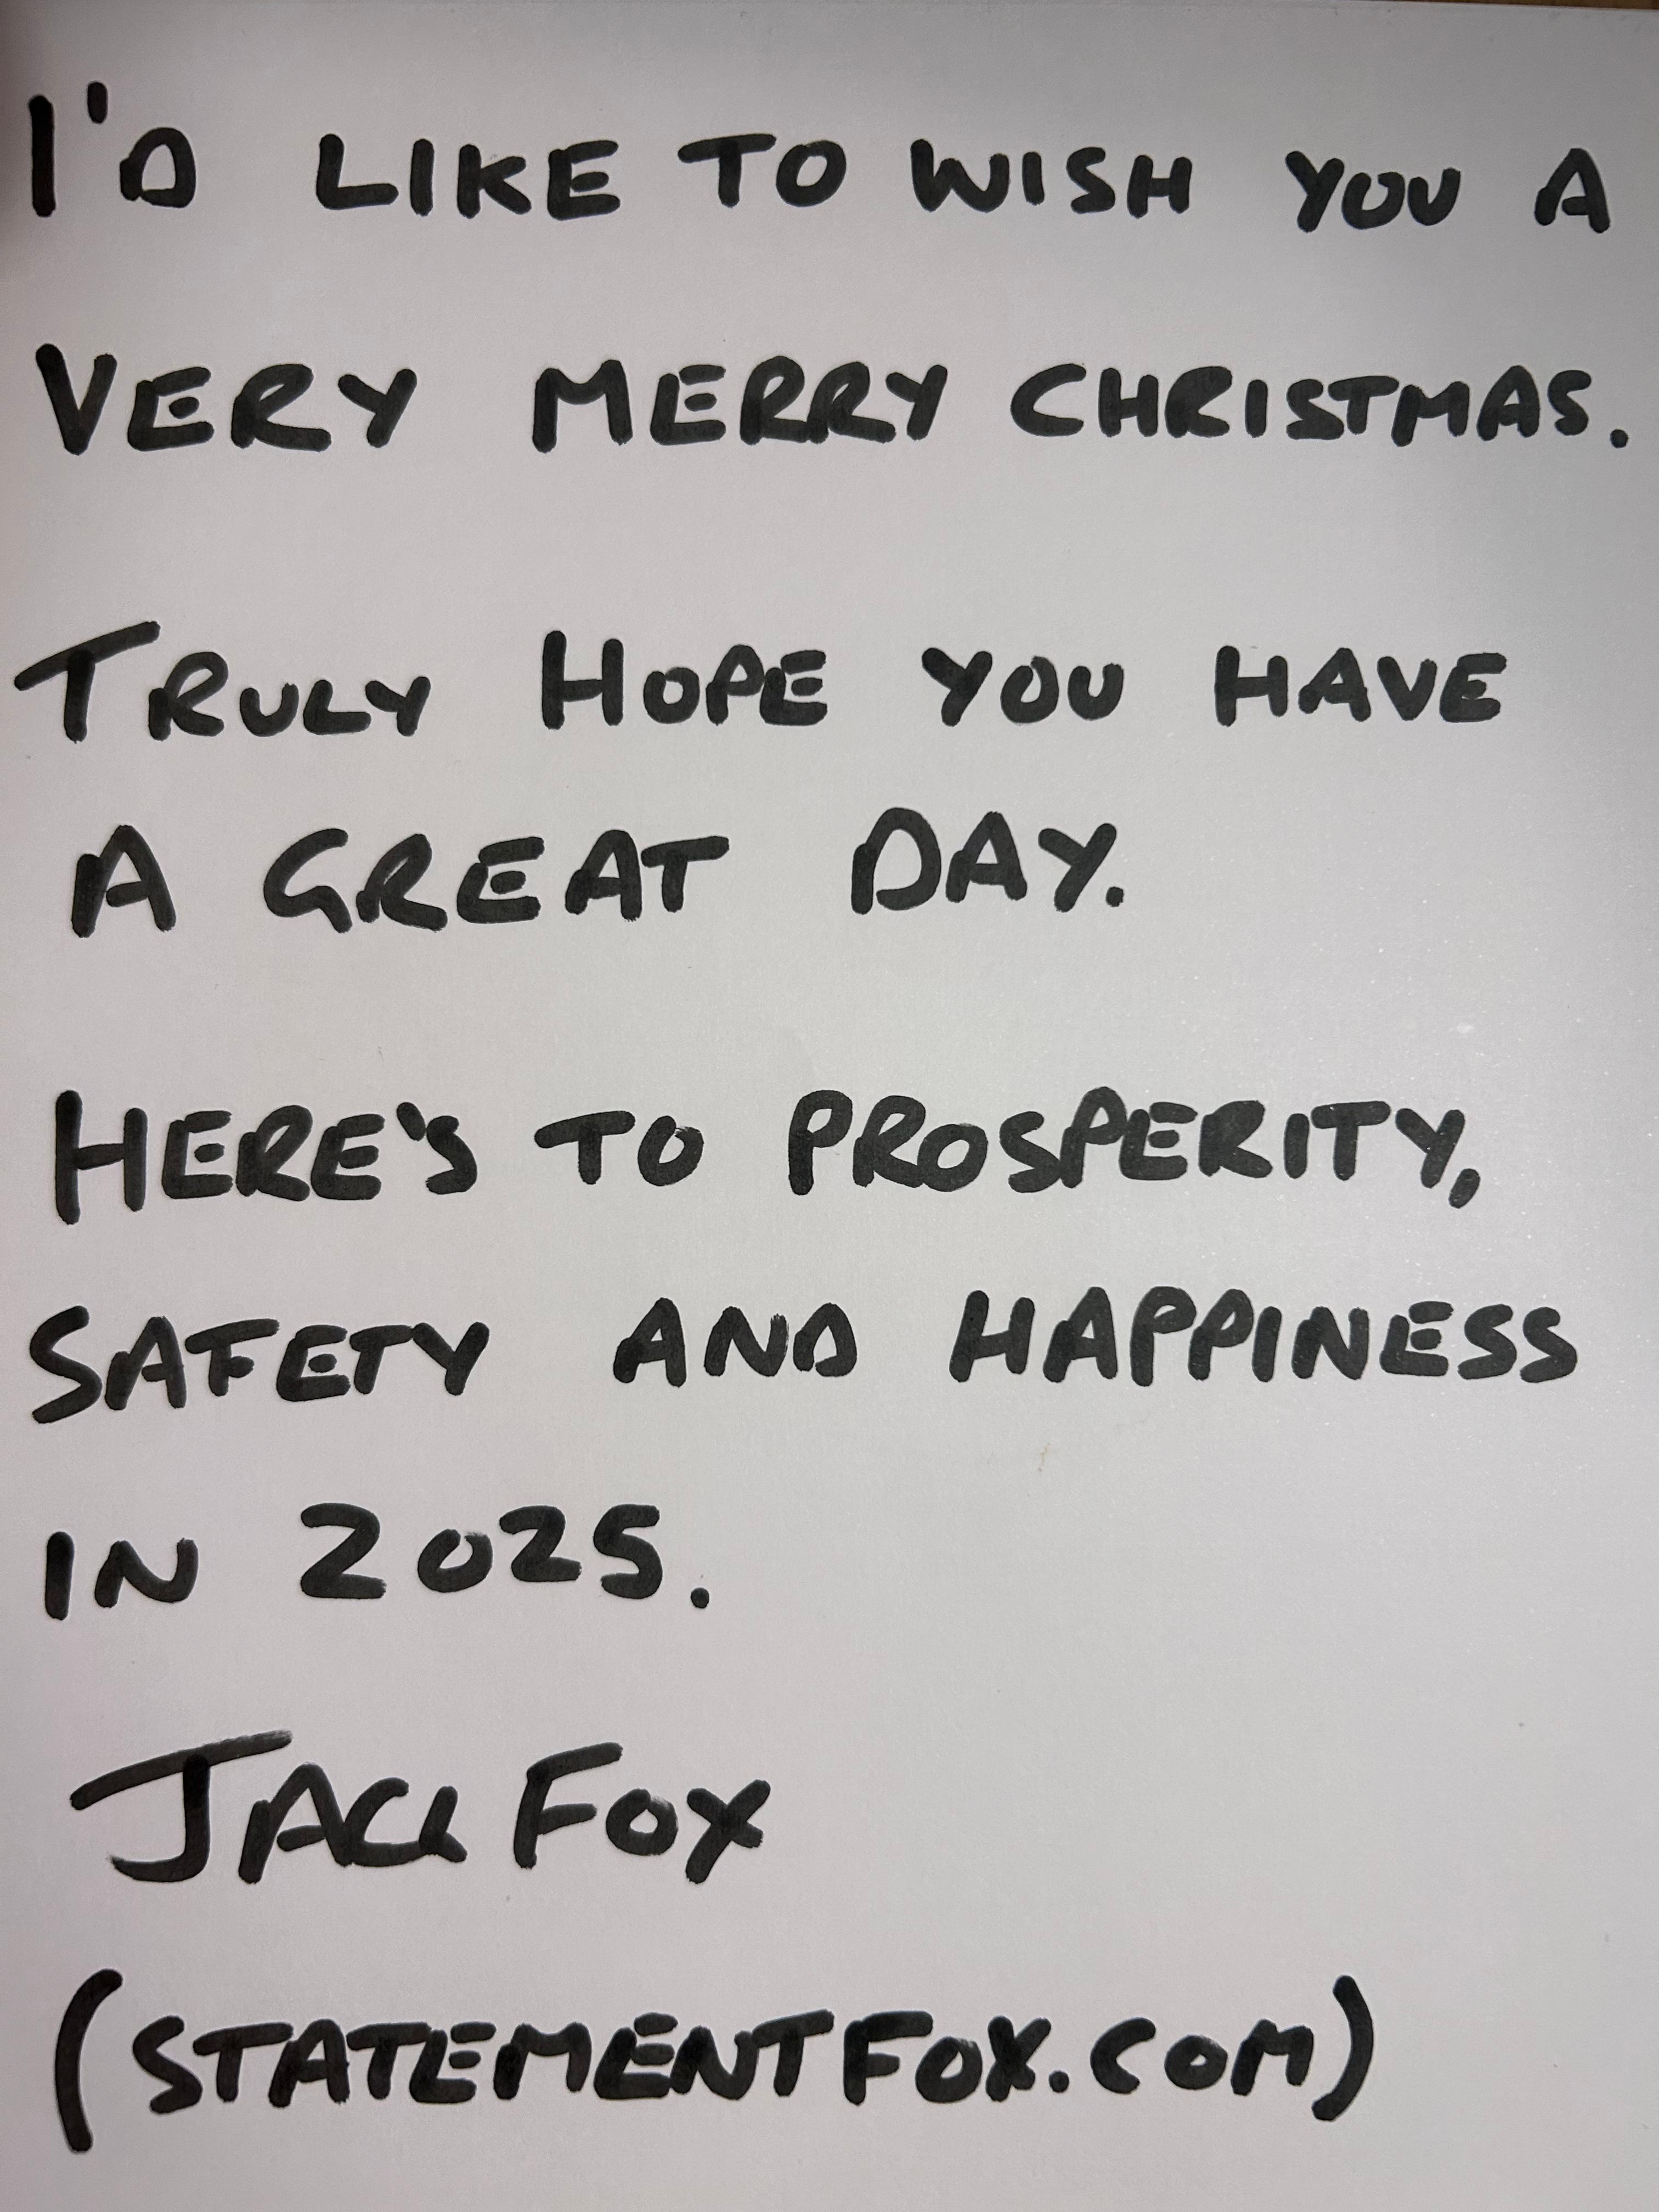 I'D LIKE TO WISH YOU A
VERY MERRY CHRISTMAS.
TRULY HOPE YOU HAVE
A GREAT DAY.
HERE'S TO PROSPERITY,
SAFETY AND HAPPINESS
IN 2025.
JACK FOX
(STATEMENTFOX.COM)